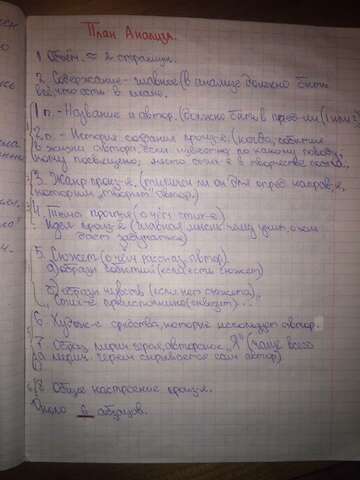 План Анализа.
1. Объём. ≈ 2 страницы.
2. Содержание - главное (в анализе должно быть
всё, что есть в плане.
1 п. - Название и автор. (должно быть в пред-ии (1 или 2)
2 п. - История создания произ-я. (когда, события
в жизни автора, если известно по какому поводу,
кому посвящено, место стих-я в творчестве поэта.
3. Жанр произ-я. (типичен ли он для опред. направ-я,
котором "творит" автор.)
4. Тема произ-я (о чём стих-е)
Идея произ-я (главная мысль: чему учит, о чём
даст задуматься)
5. Сюжет (о чём рассказ. автор)
а) образы событий (если есть сюжет)
б) образы чувств (если нет сюжета)
Стих-е
6. Худож-е средства, которые использует автор.
7. Образ лирич. героя, авторское "Я" (чаще всего
за лирич. героем скрывается сам автор)
8. Общее настроение произ-я.
Около 8 абзацев.